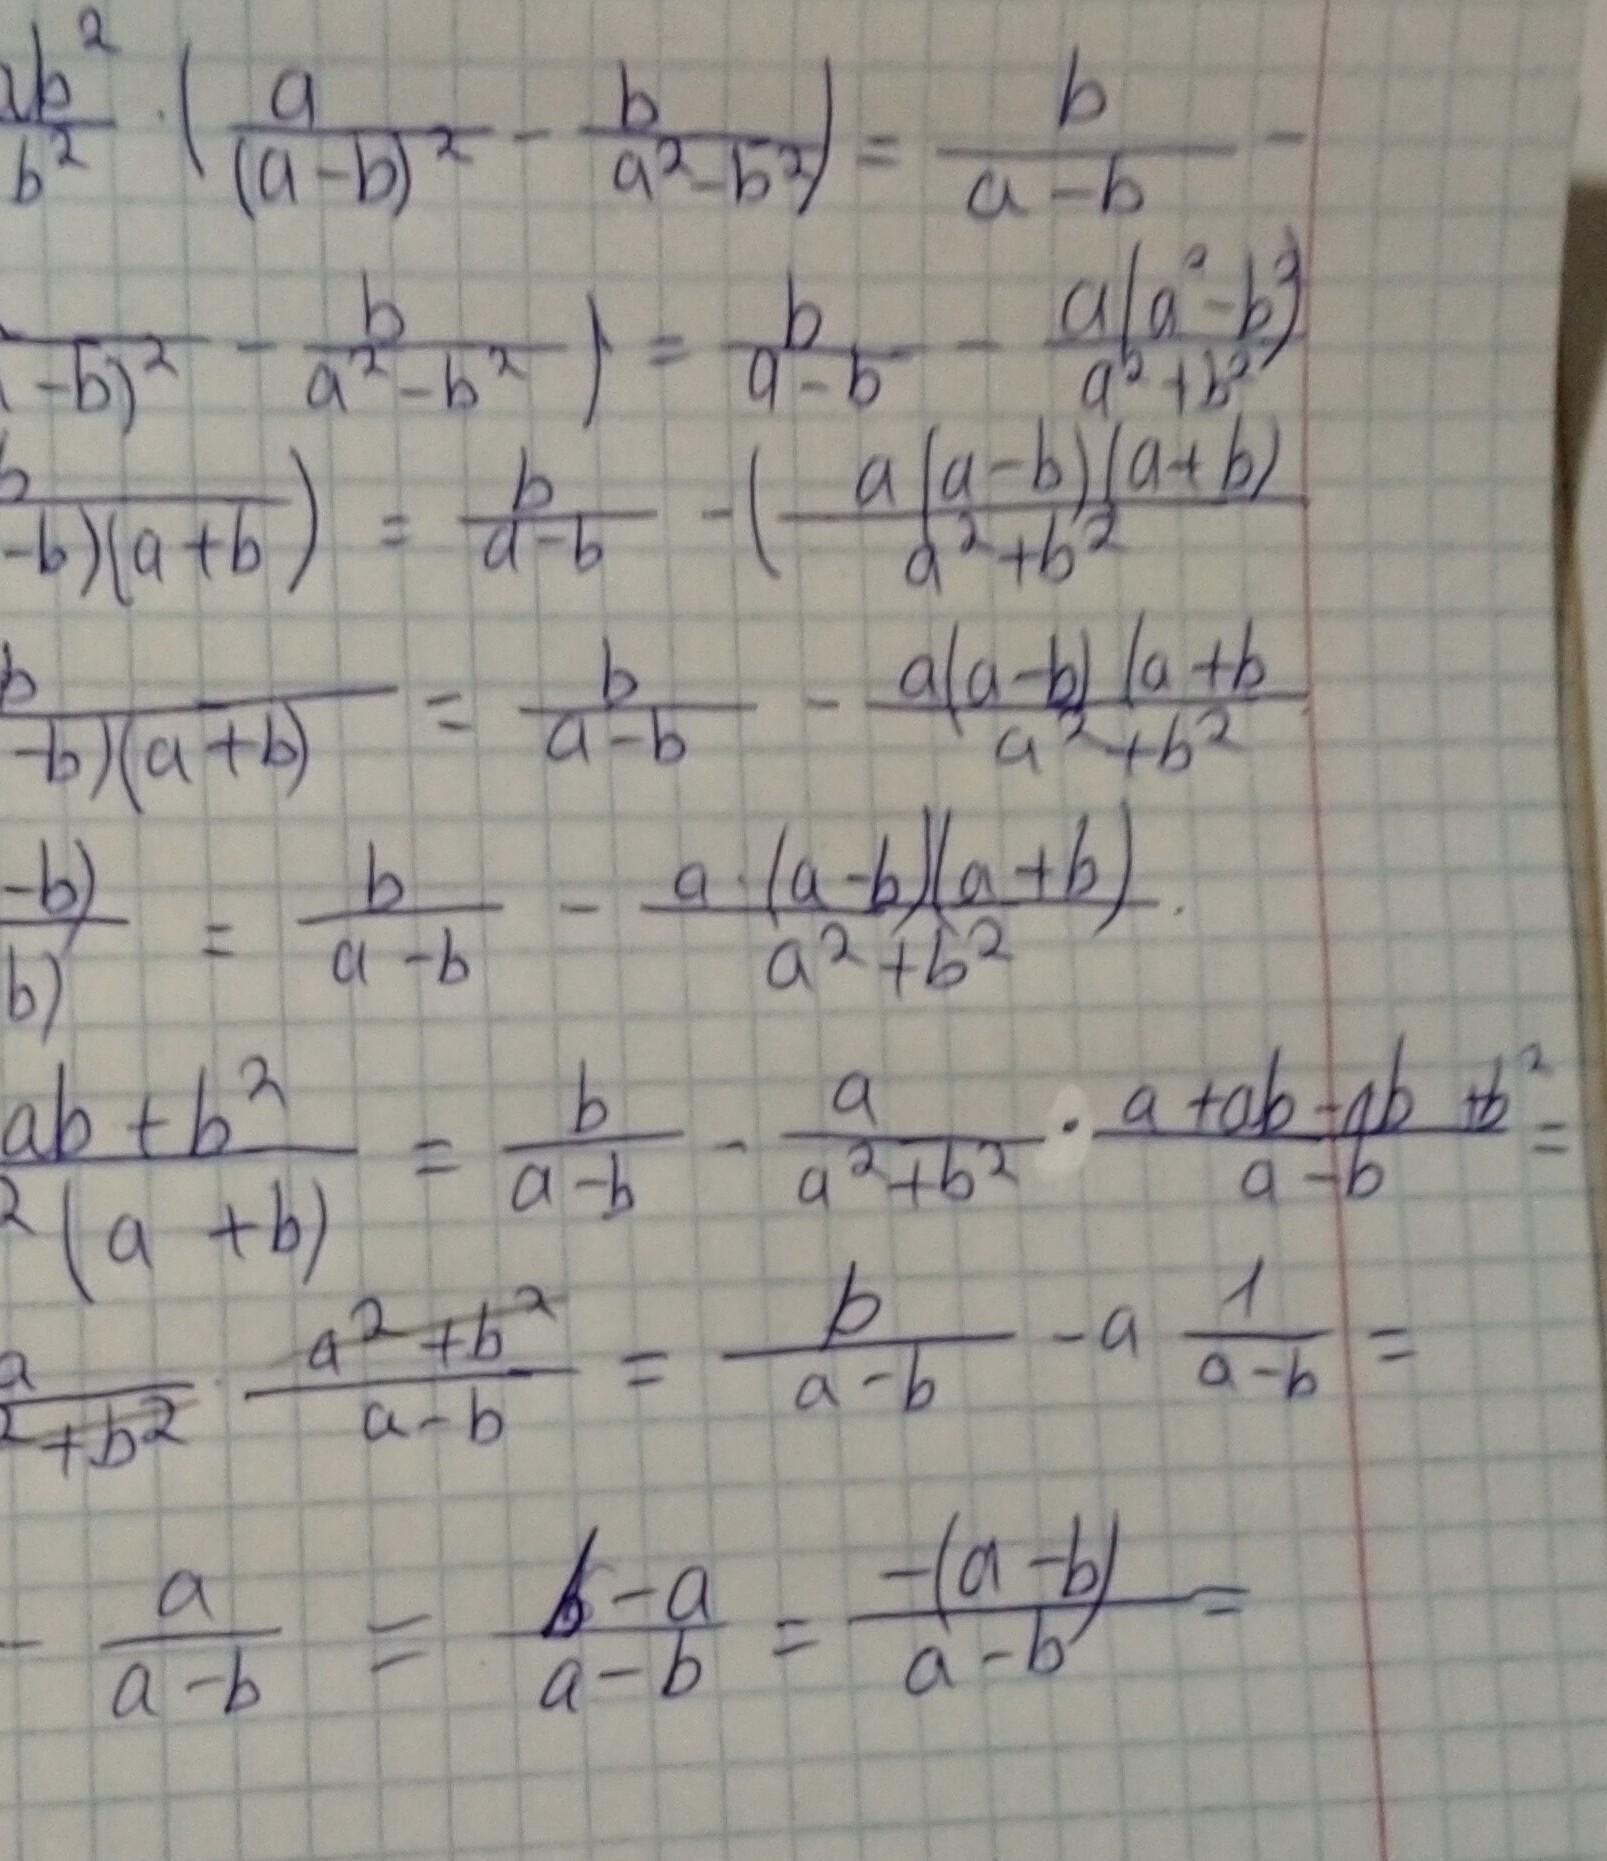 ab² / b² · ( a / (a-b)² - b / a²-b² ) = b / a-b -
-b)² - b / a²-b² ) = b / a-b - a(a²-b²) / a²+b²
b / -b)(a+b) ) = b / a-b - ( a(a-b)(a+b) / a²+b²
b / -b)(a+b) = b / a-b - a(a-b)(a+b / a²+b²
-b) / b) = b / a-b - a·(a-b)(a+b) / a²+b² ·
ab+b² / ²(a+b) = b / a-b - a / a²+b² · a+ab-ab+b² / a-b =
a / ²+b² · a²+b² / a-b = b / a-b - a 1 / a-b =
- a / a-b = b-a / a-b = -(a-b) / a-b =